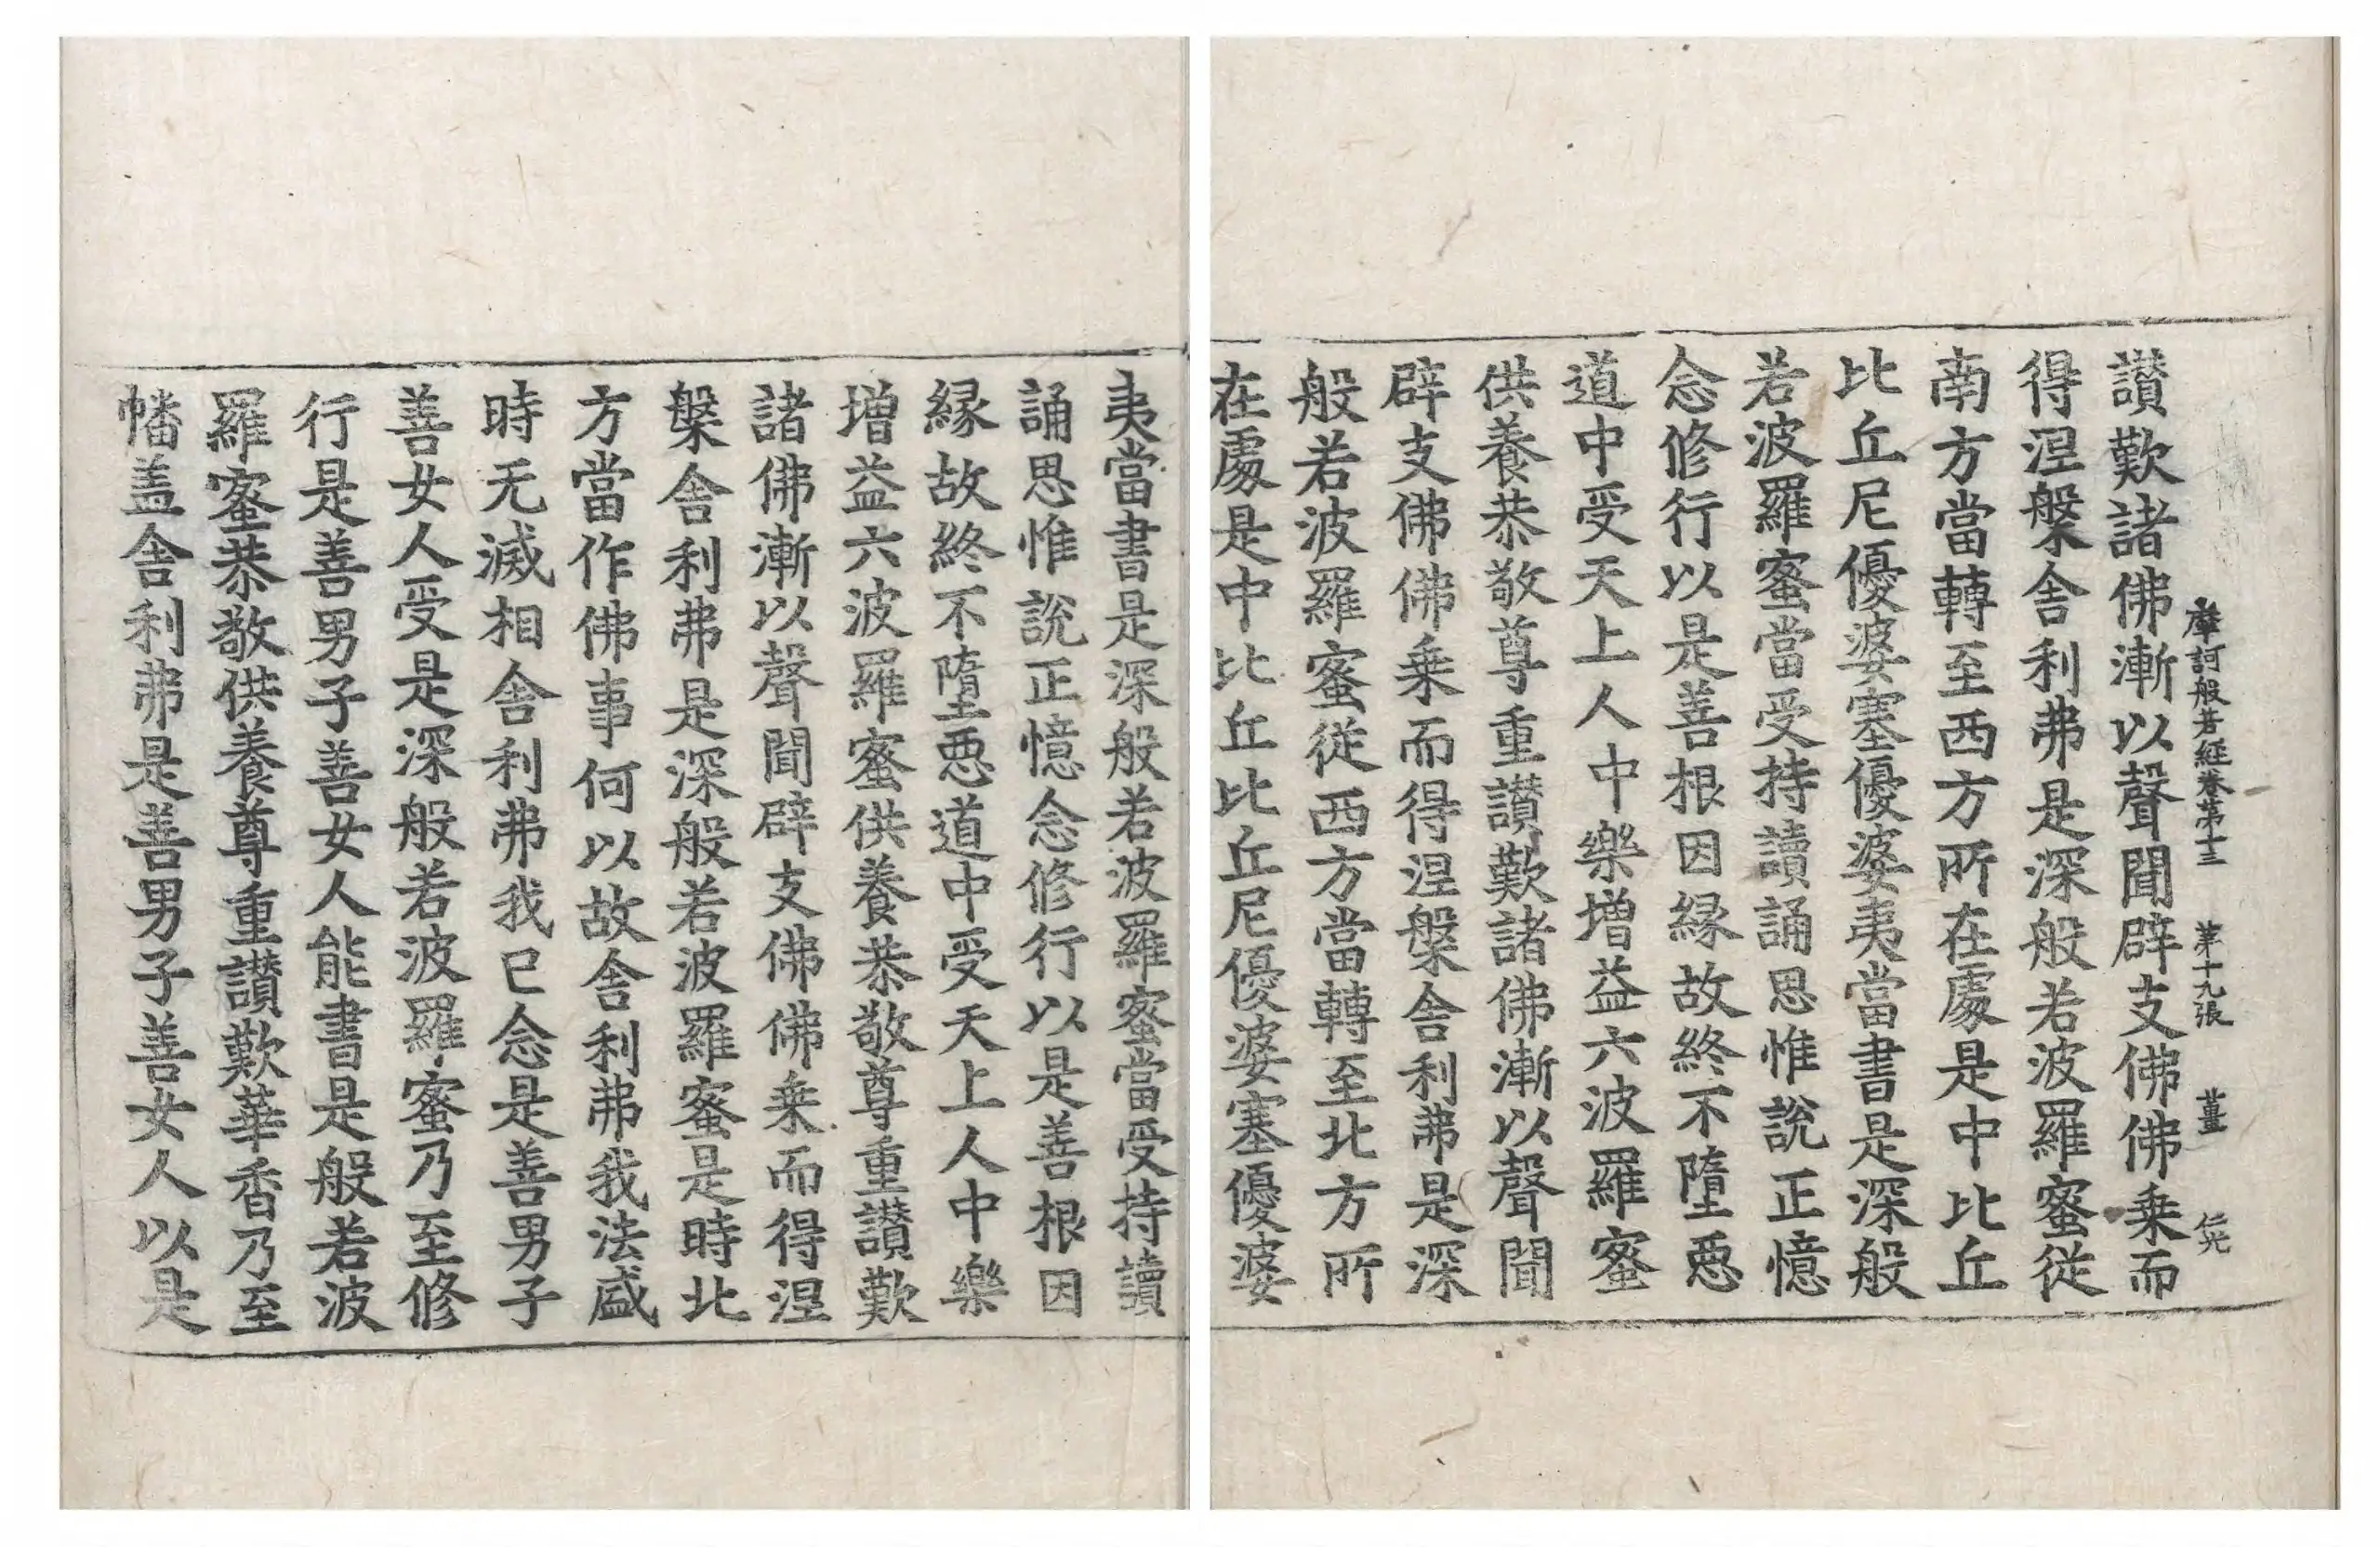 摩訶般若經卷第十三 第十九張 薑 仁光
讃歎諸佛漸以聲聞辟支佛佛乗而
得涅槃舍利弗是深般若波羅蜜従
南方當轉至西方所在處是中比丘
比丘尼優婆塞優婆夷當書是深般
若波羅蜜當受持讀誦思惟說正憶
念修行以是善根因縁故終不墮惡
道中受天上人中樂增益六波羅蜜
供養恭敬尊重讃歎諸佛漸以聲聞
辟支佛佛乗而得涅槃舍利弗是深
般若波羅蜜従西方當轉至北方所
在處是中比丘比丘尼優婆塞優婆
夷當書是深般若波羅蜜當受持讀
誦思惟說正憶念修行以是善根因
縁故終不墮惡道中受天上人中樂
增益六波羅蜜供養恭敬尊重讃歎
諸佛漸以聲聞辟支佛佛乗而得涅
槃舍利弗是深般若波羅蜜是時北
方當作佛事何以故舍利弗我法盛
時无滅相舍利弗我已念是善男子
善女人受是深般若波羅蜜乃至修
行是善男子善女人能書是般若波
羅蜜恭敬供養尊重讃歎華香乃至
幡盖舍利弗是善男子善女人以是